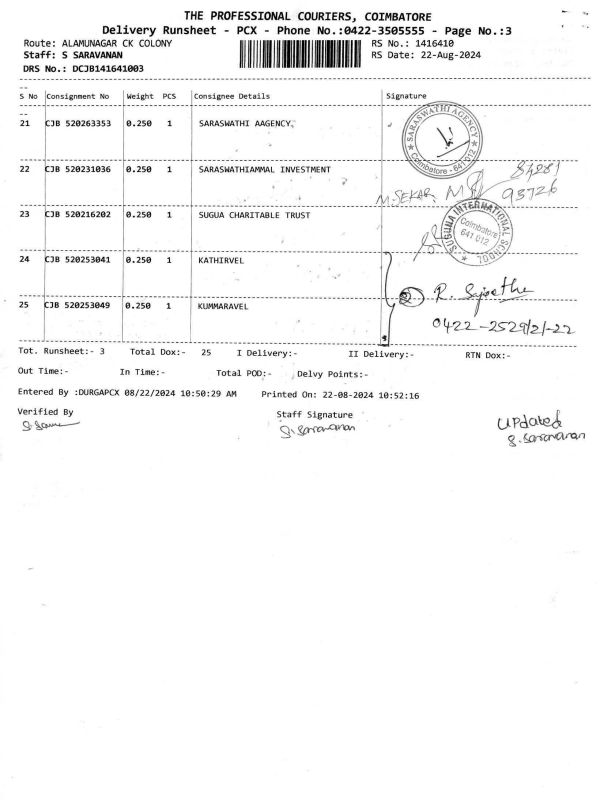 THE PROFESSIONAL COURIERS, COIMBATORE
Delivery Runsheet - PCX - Phone No.:0422-3505555 - Page No.:3
Route: ALAMUNAGAR CK COLONY
RS No.: 1416410
Staff: S SARAVANAN
RS Date: 22-Aug-2024
DRS No.: DCJB141641003
S No Consignment No Weight PCS Consignee Details Signature
21 CJB 520263353 0.250 1 SARASWATHI AAGENCY.
SARASWATHI AGENCY
Coimbatore - 641 012
22 CJB 520231036 0.250 1 SARASWATHIAMMAL INVESTMENT
M.SEKAR
93726
23 CJB 520216202 0.250 1 SUGUA CHARITABLE TRUST
SUGUNA INTERNATIONAL SCHOOL
Coimbatore
641 012
24 CJB 520253041 0.250 1 KATHIRVEL
2 R. Sujeetha
25 CJB 520253049 0.250 1 KUMMARAVEL
Tot. Runsheet:- 3 Total Dox:- 25 I Delivery:- II Delivery:- RTN Dox:-
Out Time:- In Time:- Total POD:- Delvy Points:-
Entered By :DURGAPCX 08/22/2024 10:50:29 AM Printed On: 22-08-2024 10:52:16
Verified By
Staff Signature
S. Saravanan
UPdated
S. Saravanan